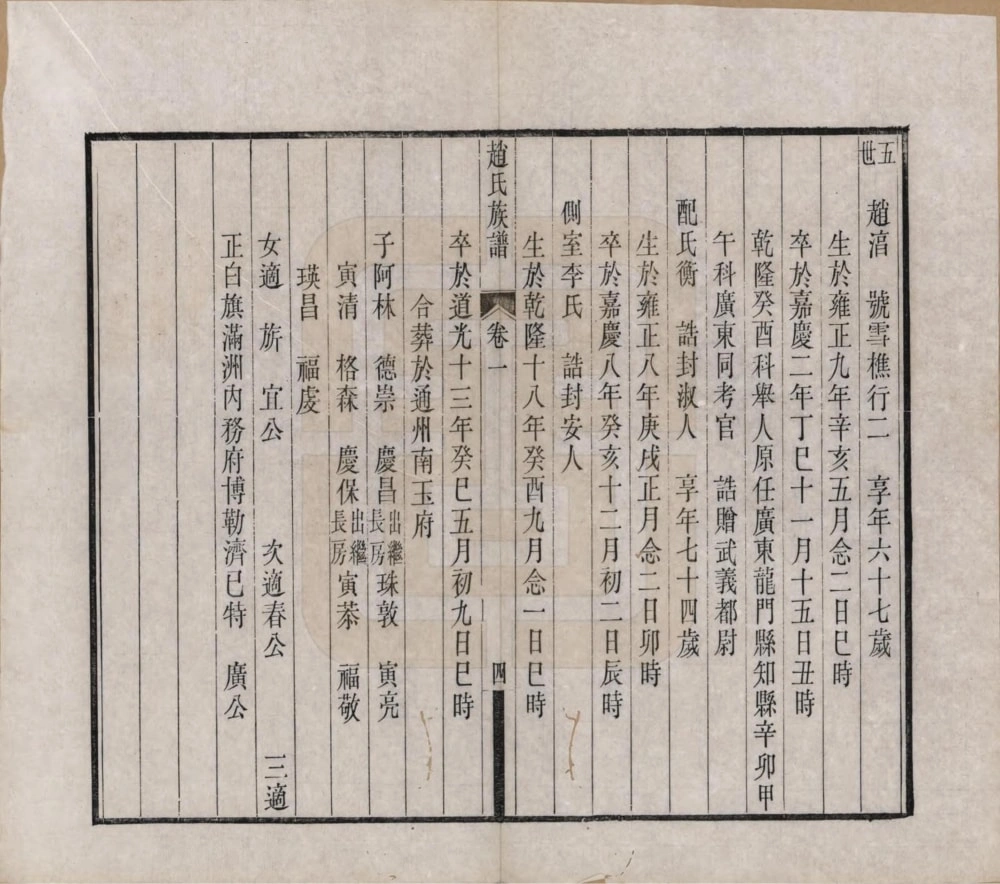 五世
趙湆　號雪樵行二　享年六十七歲
生於雍正九年辛亥五月念二日巳時
卒於嘉慶二年丁巳十一月十五日丑時
乾隆癸酉科舉人原任廣東龍門縣知縣辛卯甲
午科廣東同考官　誥贈武義都尉
配氏衡　誥封淑人　享年七十四歲
生於雍正八年庚戌正月念二日卯時
卒於嘉慶八年癸亥十二月初二日辰時
側室李氏　誥封安人
生於乾隆十八年癸酉九月念一日巳時
趙氏族譜　卷一　四
卒於道光十三年癸巳五月初九日巳時
合葬於通州南玉府
子阿林　德崇　慶昌出繼長房珠敦　寅亮
寅清　格森　慶保出繼長房寅恭　福敬
瑛昌　福虔
女適　旂　宜公　次適春公　三適
正白旗滿洲內務府博勒濟巳特　廣公